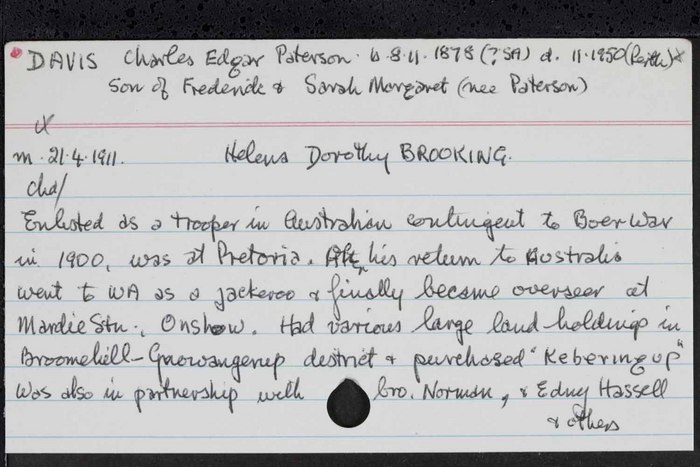 DAVIS Charles Edgar Paterson. b 8.11.1878 (?SA) d. 11.1950 (Perth) x
Son of Frederick & Sarah Margaret (nee Paterson)
x
m. 21.4.1911. Helena Dorothy BROOKING.
chd/
Enlisted as a trooper in Australian contingent to Boer War
in 1900, was at Pretoria. Aft his return to Australia
went to WA as a jackeroo & finally became overseer at
Mardie Stn., Onslow. Had various large land holdings in
Broomehill-Gnowangerup district & purchased "Keberingup"
Was also in partnership with bro. Norman, & Edney Hassell
& others